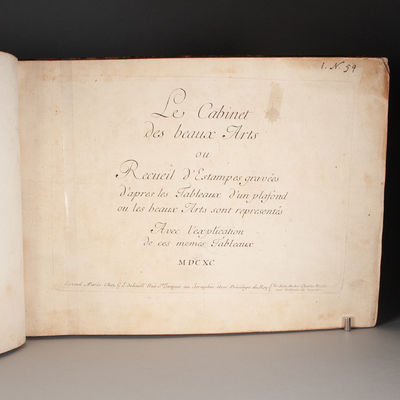 1. N 59
Le Cabinet
des beaux Arts
ou
Recueil d'Estampes gravées
d'apres les Tableaux d'un plafond
ou les beaux Arts sont representés
Avec l'explication
de ces mêmes Tableaux
MDCXC
a Paris Chez G. Edelinck Rue St Jacques au Seraphin Avec Privilege du Roy